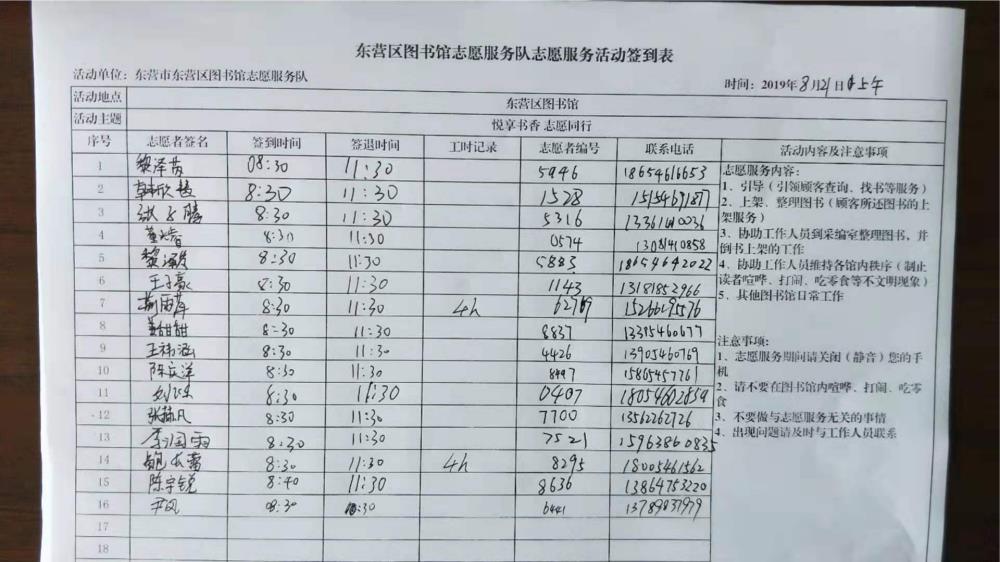 东营区图书馆志愿服务队志愿服务活动签到表
活动单位：东营市东营区图书馆志愿服务队
时间：2019年8月21日上午
活动地点 东营区图书馆
活动主题 悦享书香 志愿同行
序号 志愿者签名 签到时间 签退时间 工时记录 志愿者编号 联系电话 活动内容及注意事项
1 黎泽芮 08:30 11:30 5946 18654616653
2 8:30 11:30 1528 15154691877
3 8:30 11:30 5316
4 8:30 11:30 0574 13081410858
5 8:30 11:30 5883 18654642022
6 王子豪 8:30 11:30 1143 13181852966
7 8:30 11:30 4h 62769 15266195576
8 8:30 11:30 8837 13395460677
9 王祎涵 8:30 11:30 4426 13905460769
10 8:30 11:30 8497 15865457761
11 8:30 11:30 0407 18054602659
12 8:30 11:30 7700 13562262726
13 李润霜 8:30 11:30 7521 15963860835
14 8:30 11:30 4h 8295 18005461562
15 陈宇锐 8:40 11:30 8636 13864753220
16 尹风 08:30 10:30 6441 13789837979
17
18
志愿服务内容：
1、引导（引领顾客查询、找书等服务）
2、上架、整理图书（顾客所还图书的上
架服务）
3、协助工作人员到采编室整理图书，并
倒书上架的工作
4、协助工作人员维持各馆内秩序（制止
读者喧哗、打闹、吃零食等不文明现象）
5、其他图书馆日常工作
注意事项：
1、志愿服务期间请关闭（静音）您的手
机
2、请不要在图书馆内喧哗、打闹、吃零
食
3、不要做与志愿服务无关的事情
4、出现问题请及时与工作人员联系